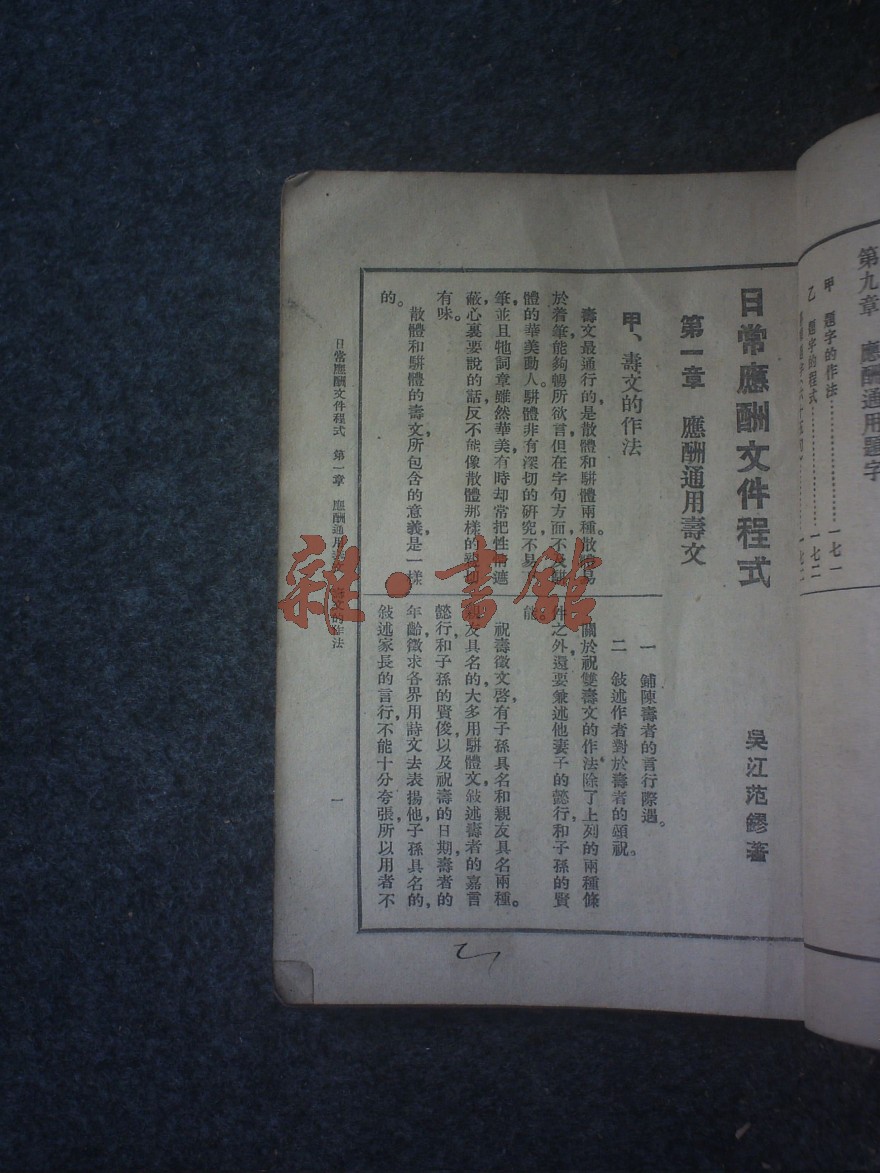 第九章 應酬通用題字
甲 題字的作法……一七一
乙 題字的程式……一七二
日常應酬文件程式
吳江范鏐著
第一章 應酬通用壽文
甲、壽文的作法
壽文最通行的是散體和駢體兩種。散體易
於着筆，能夠暢所欲言，但在字句方面，不及駢
體的華美動人。駢體非有深切的研究，不易
筆，並且牠詞章雖然華美，有時却常把性情遮
蔽，心裏要說的話，反不能像散體那樣的親切
有味。
散體和駢體的壽文，所包含的意義，是一樣
的。
一 鋪陳壽者的言行際遇。
二 敍述作者對於壽者的頌祝。
關於祝雙壽文的作法，除了上列的兩種條
件之外，還要兼述他妻子的懿行和子孫的賢
能。
祝壽徵文啓，有子孫具名和親友具名兩種。
親友具名的，大多用駢體文，敍述壽者的嘉言
懿行和子孫的賢俊，以及祝壽的日期，壽者的
年齡，徵求各界用詩文去表揚他。子孫具名的，
敍述家長的言行，不能十分夸張，所以用者不
日常應酬文件程式 第一章 應酬通用壽文 壽文的作法
一
雜·書館